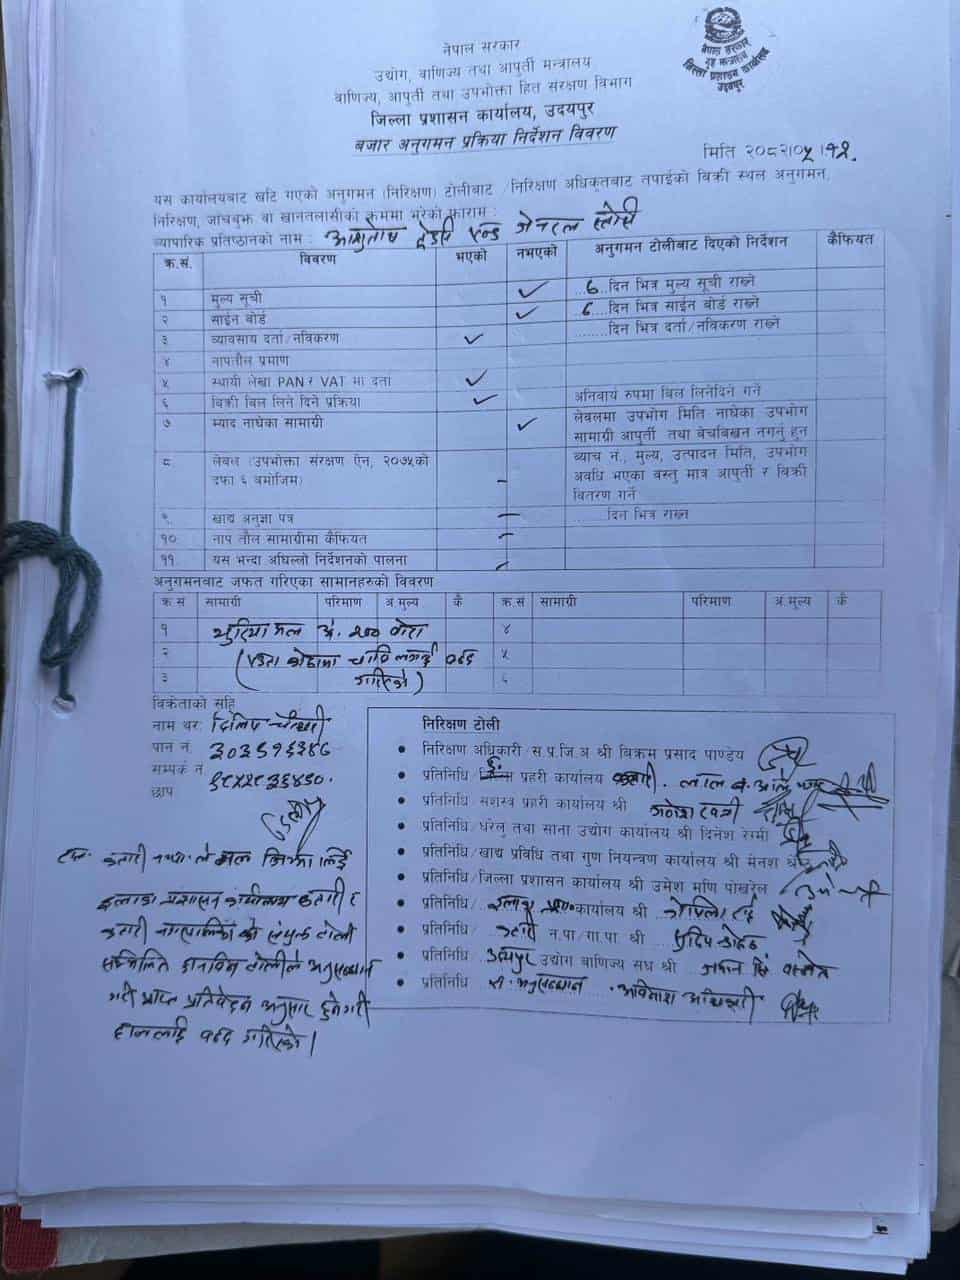 नेपाल सरकार
गृह मन्त्रालय
जिल्ला प्रशासन कार्यालय
उदयपुर
नेपाल सरकार
उद्योग, वाणिज्य तथा आपुर्ती मन्त्रालय
वाणिज्य, आपुर्ती तथा उपभोक्ता हित संरक्षण विभाग
जिल्ला प्रशासन कार्यालय, उदयपुर
बजार अनुगमन प्रक्रिया निर्देशन विवरण
मिति २०८२।०५।१२.
यस कार्यालयबाट खटि गएको अनुगमन (निरिक्षण) टोलीबाट /निरिक्षण अधिकृतबाट तपाईको बिक्री स्थल अनुगमन,
निरिक्षण, जाँचबुझ वा खानतलासीको क्रममा भुरेको फाराम :
व्यापारिक प्रतिष्ठानको नाम : आशुतोष ट्रेडर्स एण्ड जेनरल स्टोर्स
क्र.सं. विवरण भएको नभएको अनुगमन टोलीबाट दिएको निर्देशन कैफियत
१ मुल्य सूची ✓ ..७..दिन भित्र मुल्य सूची राख्ने
२ साईन बोर्ड ✓ ७...दिन भित्र साईन बोर्ड राख्ने
३ व्यावसाय दर्ता/नविकरण ✓ .......दिन भित्र दर्ता/नविकरण राख्ने
४ नापतौल प्रमाण
५ स्थायी लेखा PAN र VAT मा दर्ता ✓
६ बिक्री बिल लिने दिने प्रक्रिया ✓ अनिवार्य रुपमा बिल लिनेदिने गर्ने
७ म्याद नाघेका सामाग्री ✓ लेवलमा उपभोग मिति नाघेका उपभोग
सामाग्री आपुर्ती तथा बेचबिखन नगर्नु हुन
८ लेबल (उपभोक्ता संरक्षण ऐन, २०७५को दफा ६ बमोजिम) - ब्याच नं., मुल्य, उत्पादन मिति, उपभोग
अवधि भएका वस्तु मात्र आपुर्ती र बिक्री
वितरण गर्ने
९. खाद्य अनुज्ञा पत्र - .......दिन भित्र राख्न
१० नाप तौल सामाग्रीमा कैफियत -
११. यस भन्दा अघिल्लो निर्देशनको पालना -
अनुगमनबाट जफत गरिएका सामानहरुको विवरण
क्र.सं सामाग्री परिमाण अ.मुल्य कै क्र.सं सामाग्री परिमाण अ.मुल्य कै
१ युरिया मल अं. २०० बोरा ४
२ ५
३ गरिएको) ६
बिक्रेताको सहि
नाम थर: दिलिप चौधरी
पान नं.
सम्पर्क नं
छाप
निरिक्षण टोली
• निरिक्षण अधिकारी/स.प्र.जि.अ श्री बिक्रम प्रसाद पाण्डेय
• प्रतिनिधि/ प्रहरी कार्यालय
• प्रतिनिधि/सशस्त्र प्रहरी कार्यालय श्री गणेश खत्री
• प्रतिनिधि/घरेलु तथा साना उद्योग कार्यालय श्री दिनेश रेग्मी
• प्रतिनिधि/खाद्य प्रविधि तथा गुण नियन्त्रण कार्यालय श्री
• प्रतिनिधि/जिल्ला प्रशासन कार्यालय श्री उमेश मणि पोखरेल
• प्रतिनिधि/ इलाका प्रशा. कार्यालय श्री
• प्रतिनिधि/ कटारी न.पा/गा.पा. श्री प्रदिप
• प्रतिनिधि/ उदयपुर उद्योग वाणिज्य संघ श्री
• प्रतिनिधि
इलाका प्रशासन कार्यालय कटारी र
कटारी नगरपालिका को संयुक्त टोली
गरी प्राप्त प्रतिवेदन अनुसार हुनेगरी
हाललाई बन्द गरिएको।